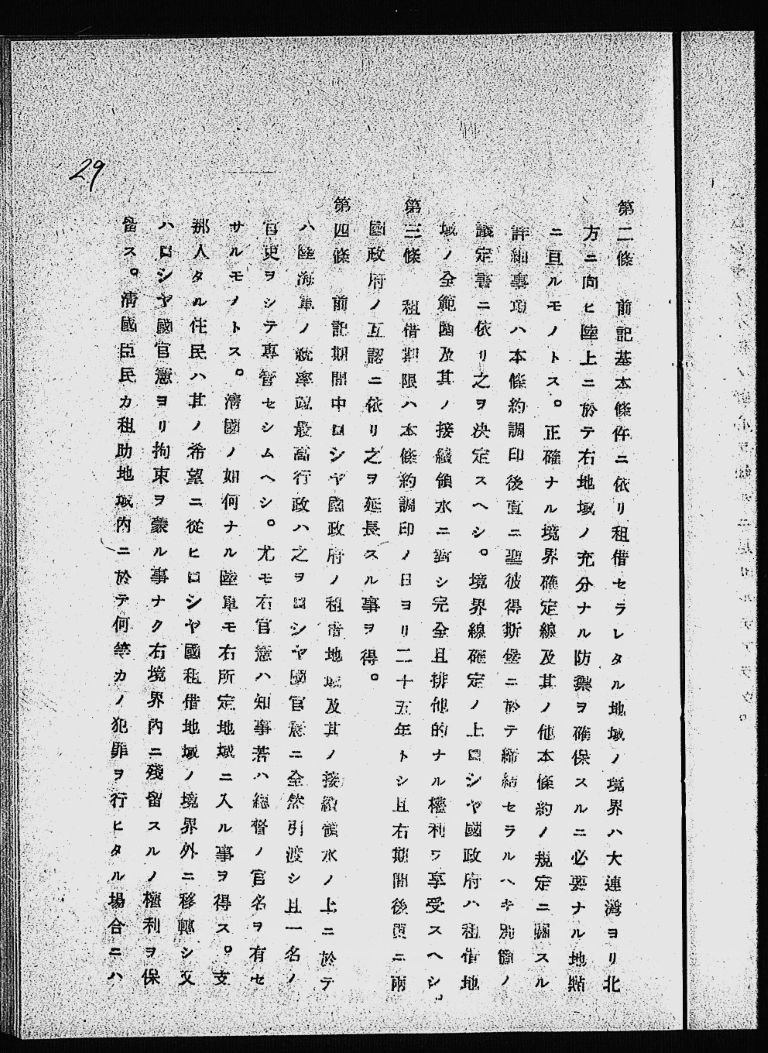 29
第二條　前記基本條件ニ依リ租借セラレタル地域ノ境界ハ大連灣ヨリ北
方ニ向ヒ陸上ニ於テ右地域ノ充分ナル防禦ヲ確保スルニ必要ナル地點
ニ亘ルモノトス。正確ナル境界確定線及其ノ他本條約ノ規定ニ關スル
詳細事項ハ本條約調印後直ニ聖彼得斯堡ニ於テ締結セラルヘキ別箇ノ
議定書ニ依リ之ヲ決定スヘシ。境界線確定ノ上ロシヤ國政府ハ租借地
域ノ全範圍及其ノ接續領水ニ對シ完全且排他的ナル權利ヲ享受スヘシ。
第三條　租借期限ハ本條約調印ノ日ヨリ二十五年トシ且右期間後更ニ兩
國政府ノ互認ニ依リ之ヲ延長スル事ヲ得。
第四條　前記期間中ロシヤ國政府ノ租借地域及其ノ接續領水ノ上ニ於テ
ハ陸海軍ノ統率竝最高行政ハ之ヲロシヤ國官憲ニ全然引渡シ且一名ノ
官吏ヲシテ專管セシムヘシ。尤モ右官憲ハ知事若ハ總督ノ官名ヲ有セ
サルモノトス。清國ノ如何ナル陸軍モ右所定地域ニ入ル事ヲ得ス。支
那人タル住民ハ其ノ希望ニ從ヒロシヤ國租借地域ノ境界外ニ移轉シ又
ハロシヤ國官憲ヨリ拘束ヲ蒙ル事ナク右境界內ニ殘留スルノ權利ヲ保
留ス。清國臣民カ租助地域內ニ於テ何等カノ犯罪ヲ行ヒタル場合ニハ